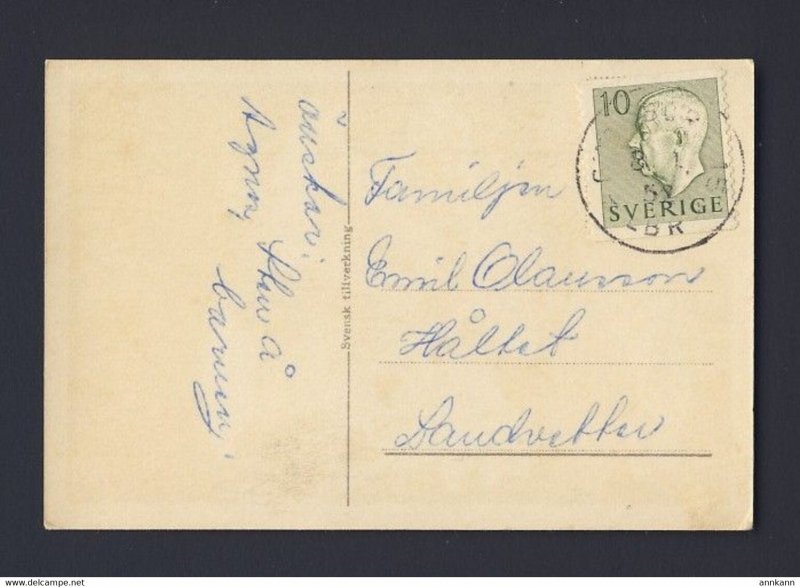 önskar;
Agnes, Sten å
barnen;
Svensk tillverkning
10
SVERIGE
Familjen
Emil Olausson
Håltet
Landvetter
annkann